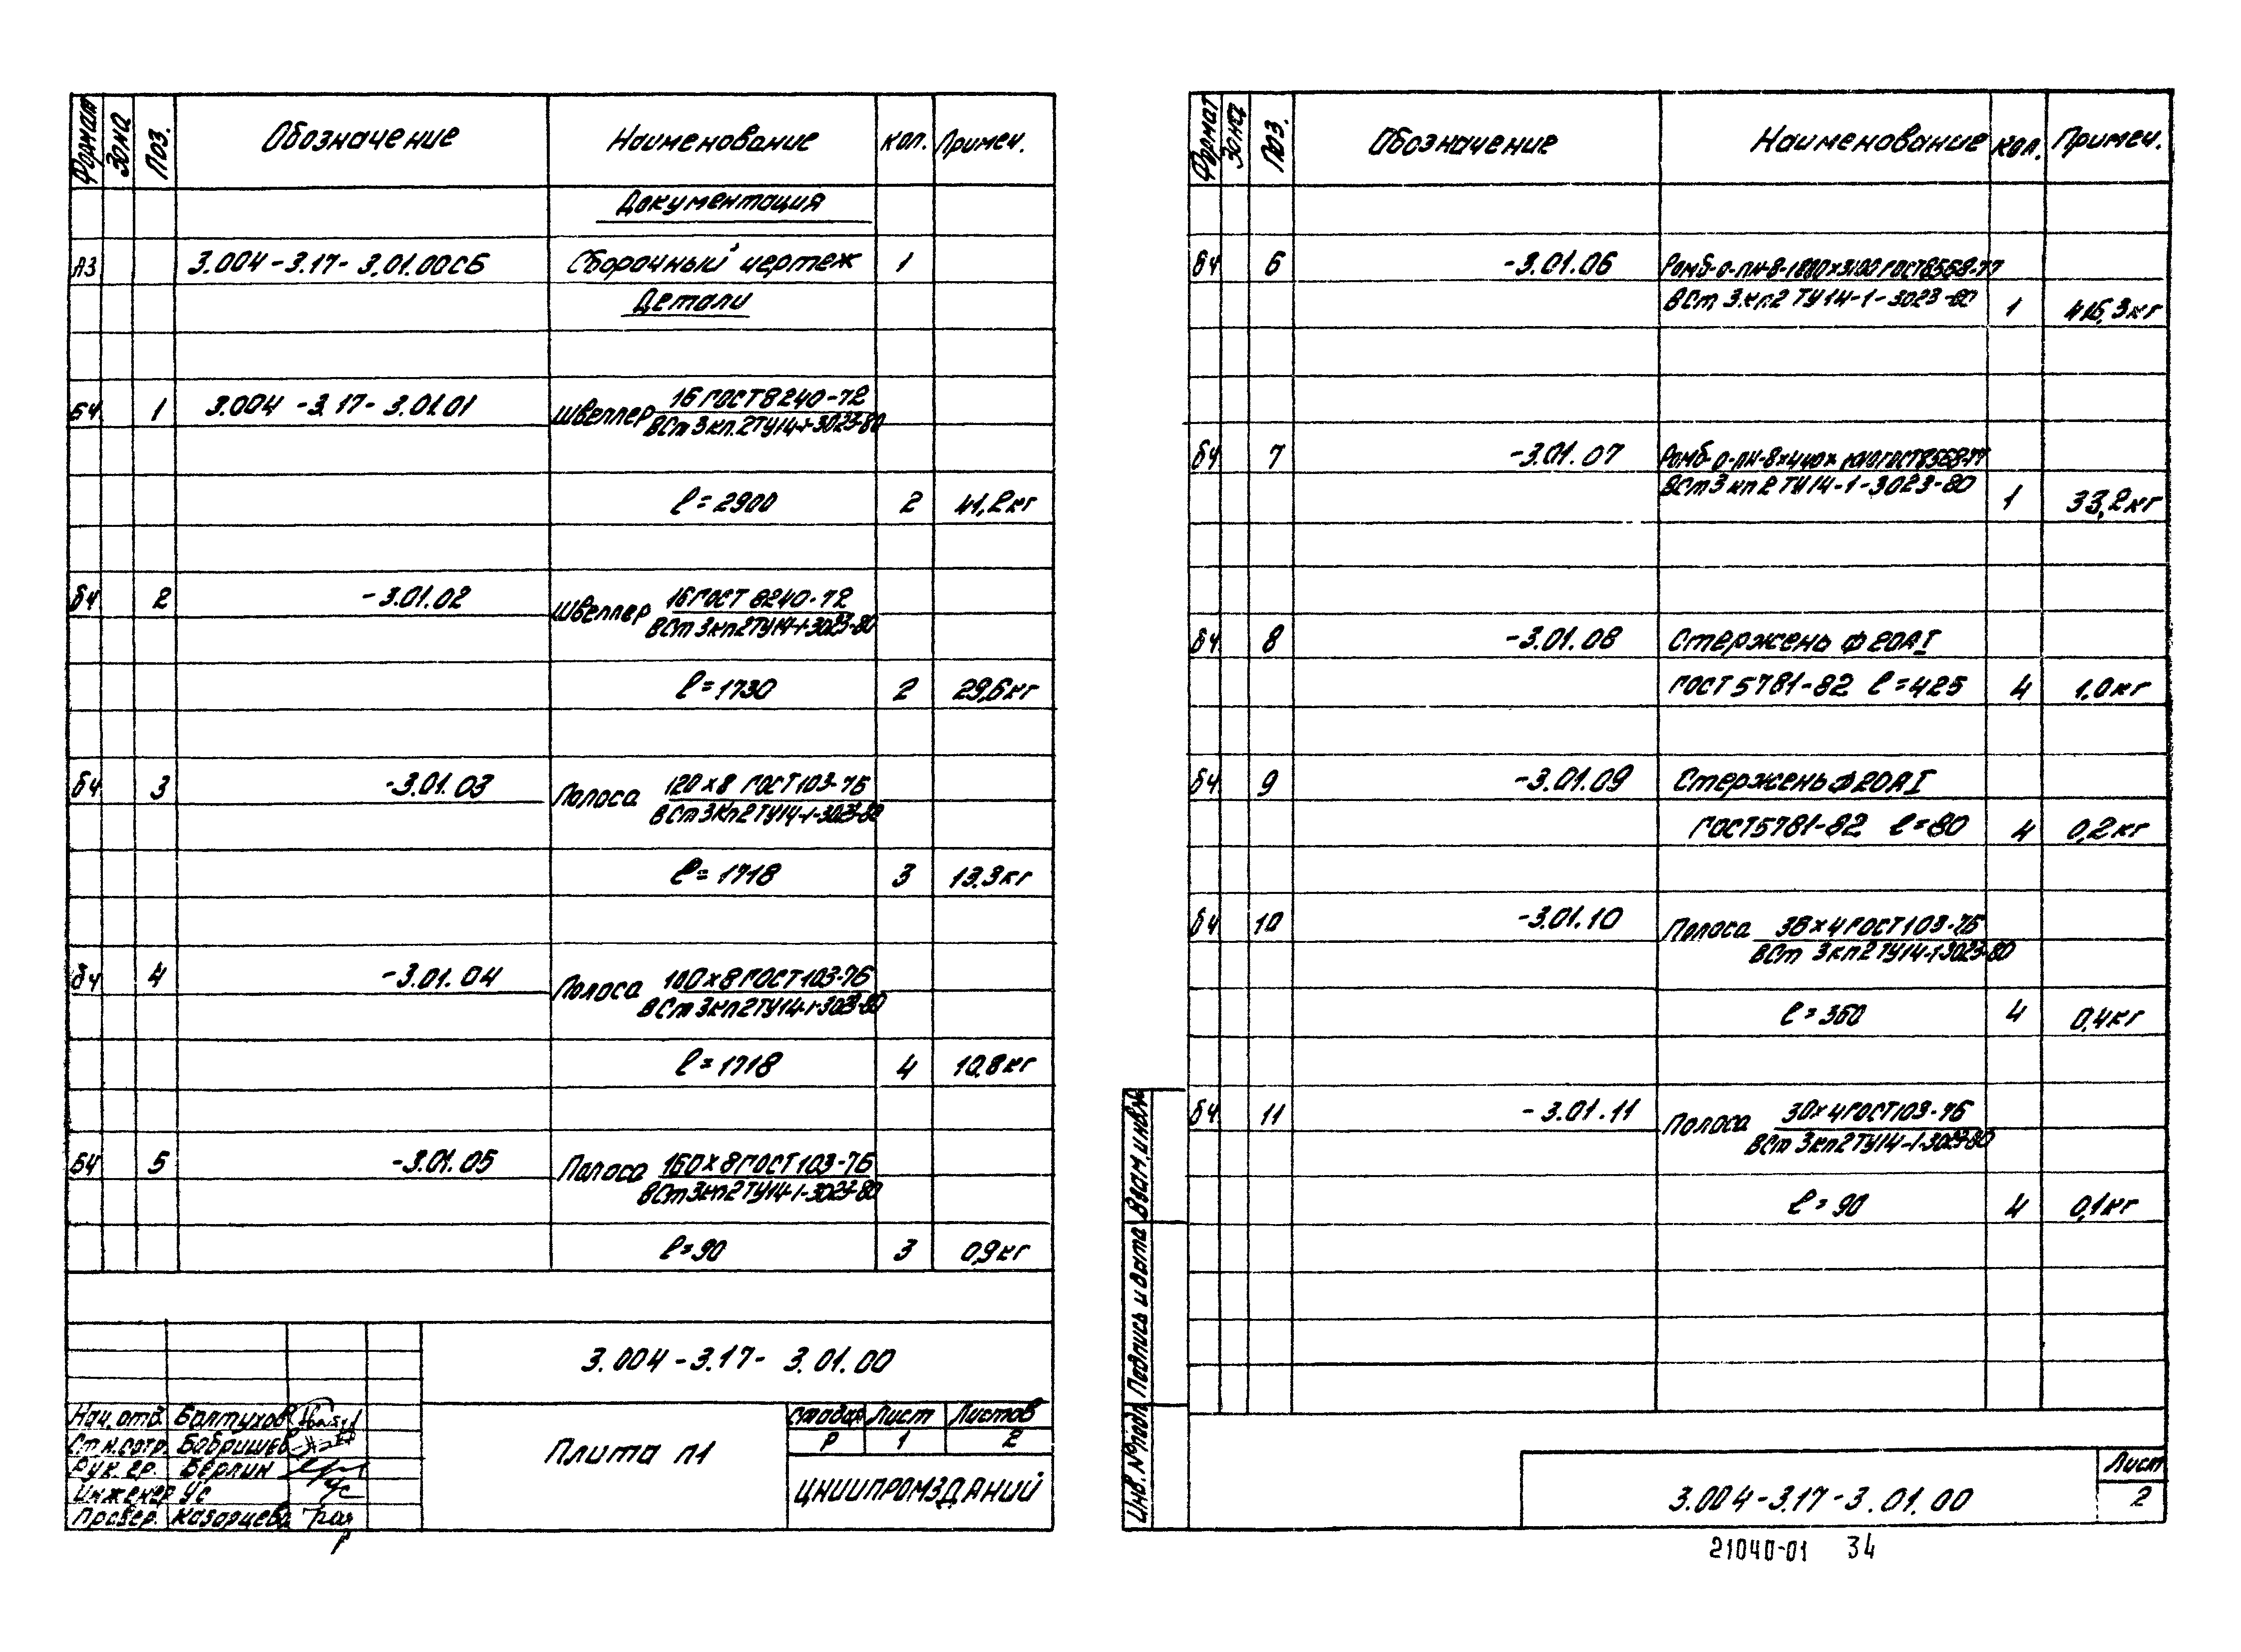 Формат Зона Поз. Обозначение Наименование Кол. Примеч.
Документация
А3 3.004-3.17-3.01.00СБ Сборочный чертеж 1
Детали
БЧ 1 3.004-3.17-3.01.01 Швеллер 16 ГОСТ 8240-72
ВСт3кп2 ТУ14-1-3023-80
ℓ=2900 2 41,2кг
БЧ 2 -3.01.02 Швеллер 16 ГОСТ 8240-72
ВСт3кп2 ТУ14-1-3023-80
ℓ=1730 2 29,6кг
БЧ 3 -3.01.03 Полоса 120×8 ГОСТ 103-76
ВСт3кп2 ТУ14-1-3023-80
ℓ=1718 3 13,3кг
БЧ 4 -3.01.04 Полоса 100×8 ГОСТ 103-76
ВСт3кп2 ТУ14-1-3023-80
ℓ=1718 4 10,8кг
БЧ 5 -3.01.05 Полоса 160×8 ГОСТ 103-76
ВСт3кп2 ТУ14-1-3023-80
ℓ=90 3 0,9кг
3.004-3.17-3.01.00
Нач. отд. Балтухов
Ст.н.сотр. Бабришев
Рук. гр. Берлин
Инженер Ус
Провер. Казарцева
Плита П1
Стадия Лист Листов
Р 1 2
ЦНИИПРОМЗДАНИЙ
Формат Зона Поз. Обозначение Наименование Кол. Примеч.
БЧ 6 -3.01.06 Ромб-О-ПН-8-1880×3100 ГОСТ 8568-77
ВСт3кп2 ТУ14-1-3023-80 1 416,3кг
БЧ 7 -3.01.07 Ромб-О-ПН-8×440× ГОСТ 8568-77
ВСт3кп2 ТУ14-1-3023-80 1 33,2кг
БЧ 8 -3.01.08 Стержень Ф20АI
ГОСТ 5781-82 ℓ=425 4 1,0кг
БЧ 9 -3.01.09 Стержень Ф20АI
ГОСТ 5781-82 ℓ=80 4 0,2кг
БЧ 10 -3.01.10 Полоса 36×4 ГОСТ 103-76
ВСт3кп2 ТУ14-1-3023-80
ℓ=360 4 0,4кг
БЧ 11 -3.01.11 Полоса 30×4 ГОСТ 103-76
ВСт3кп2 ТУ14-1-3023-80
ℓ=90 4 0,1кг
Инв. № подл. Подпись и дата Взам. инв. №
3.004-3.17-3.01.00
Лист
2
21040-01 34